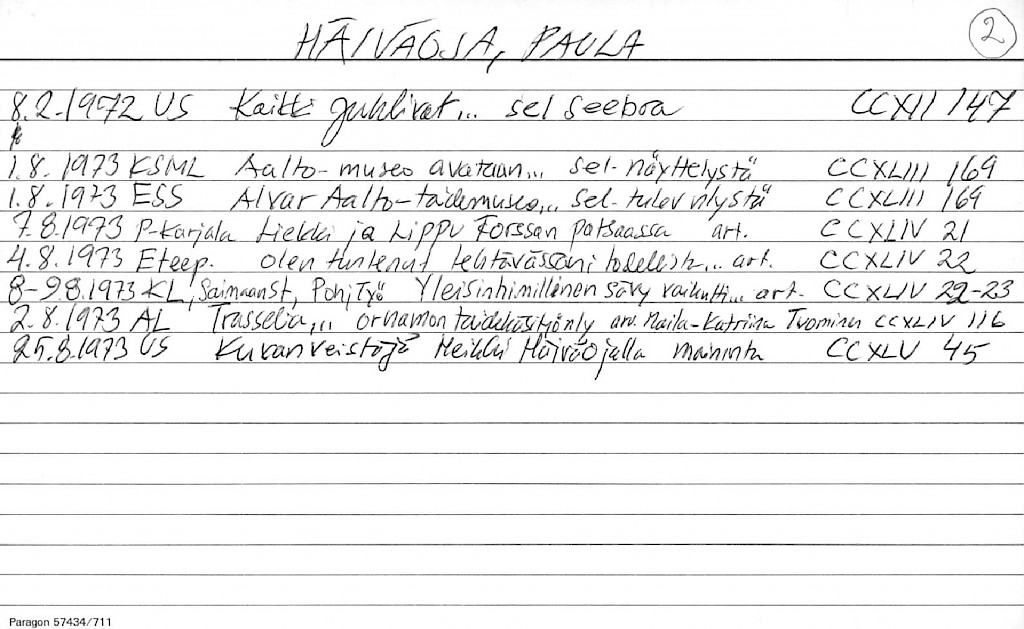 HÄIVÄOJA, PAULA 2
8.2.1972 US Kaikki juhlivat... sel seeboa CCXII 147
1.8.1973 KSML Aalto-museo avataan... sel-näyttelystä CCXLIII 169
1.8.1973 ESS Alvar Aalto-taidemuseo... sel-tulev nlystä CCXLIII 169
7.8.1973 P-Karjala Liekki ja Lippu Forssan patsaassa art. CCXLIV 21
4.8.1973 Eteep. olen tuntenut tehtävässäni todellista... art. CCXLIV 22
8-9.8.1973 KL, Saimaanst, Pohj Työ Yleisinhimillinen sävy vaikutti... art. CCXLIV 22-23
2.8.1973 AL Trasselia... ornamon taidekäsityönly arv. Maila-Katriina Tuominen CCXLIV 116
25.8.1973 US Kuvanveistäjä Heikki Häiväojalla maininta CCXLV 45
Paragon 57434/711